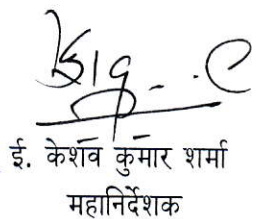 ई. केशव कुमार शर्मा
महानिर्देशक